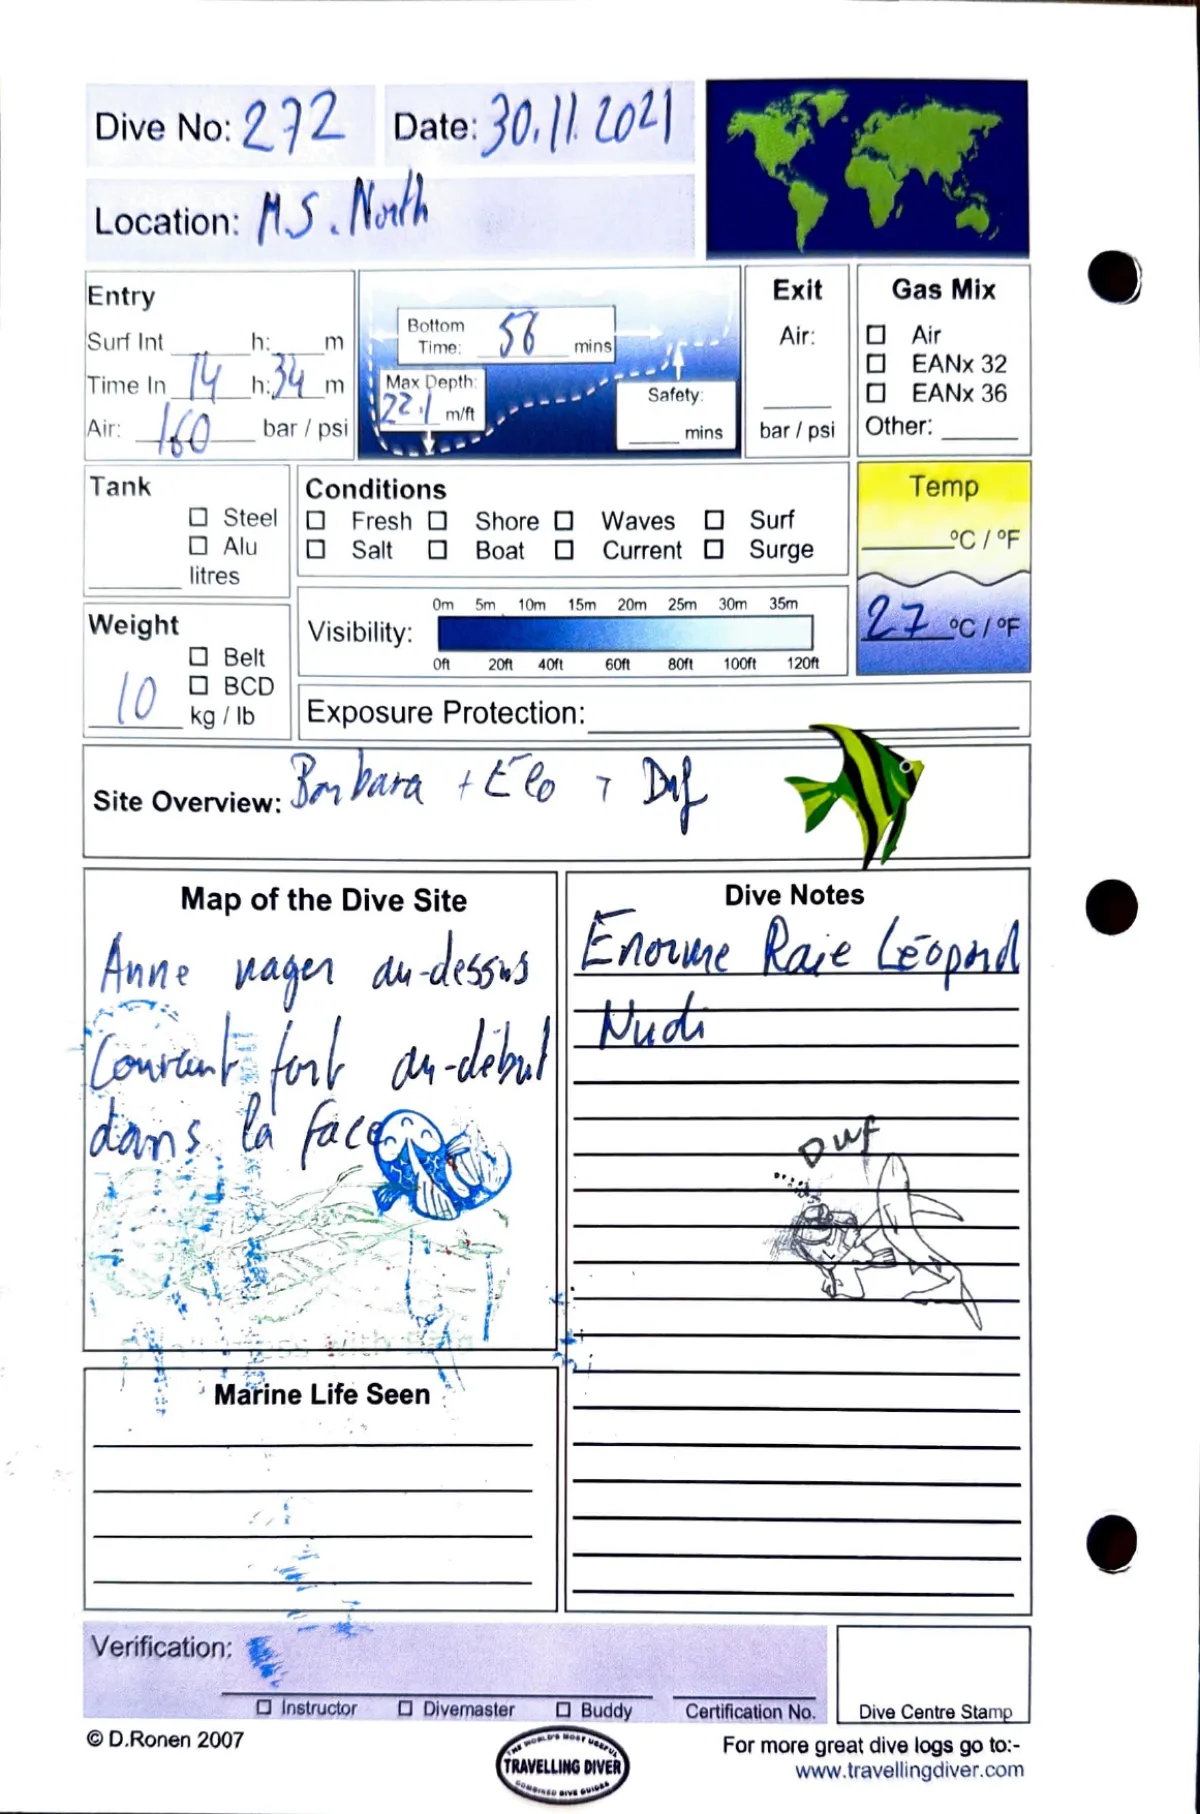 Dive No: 272 Date: 30.11.2021
Location: M.S. North
Entry
Surf Int ____ h: ____ m
Time In 14 h: 34 m
Air: 160 bar / psi
Bottom Time: 56 mins
Max Depth: 22.1 m/ft
Safety: ____ mins
Exit
Air:
____
bar / psi
Gas Mix
☐ Air
☐ EANx 32
☐ EANx 36
Other: ____
Tank
☐ Steel
☐ Alu
____ litres
Conditions
☐ Fresh ☐ Shore ☐ Waves ☐ Surf
☐ Salt ☐ Boat ☐ Current ☐ Surge
Temp
____ °C / °F
27 °C / °F
Weight
☐ Belt
☐ BCD
10 kg / lb
0m 5m 10m 15m 20m 25m 30m 35m
Visibility:
0ft 20ft 40ft 60ft 80ft 100ft 120ft
Exposure Protection: ____
Site Overview: Barbara + Élo + Duf
Map of the Dive Site
Anne nager au-dessus
Courant fort au-début
dans la face
Dive Notes
Énorme Raie Léopard
Nudi
Duf
Marine Life Seen
Verification:
☐ Instructor ☐ Divemaster ☐ Buddy Certification No.
Dive Centre Stamp
© D.Ronen 2007
THE WORLD'S MOST USEFUL
TRAVELLING DIVER
COMBINED DIVE GUIDES
For more great dive logs go to:-
www.travellingdiver.com